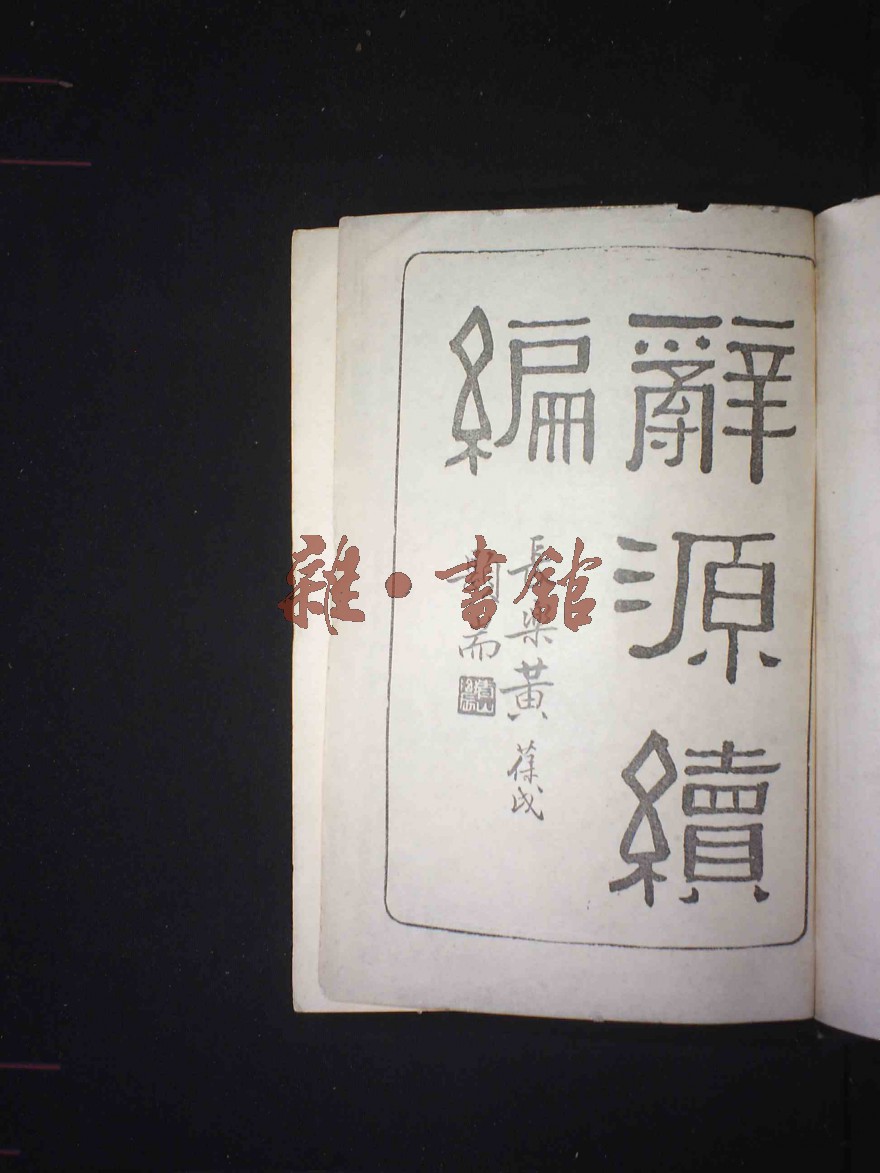 辭源續
編
長樂黃葆戉
圖耑
雜·書館